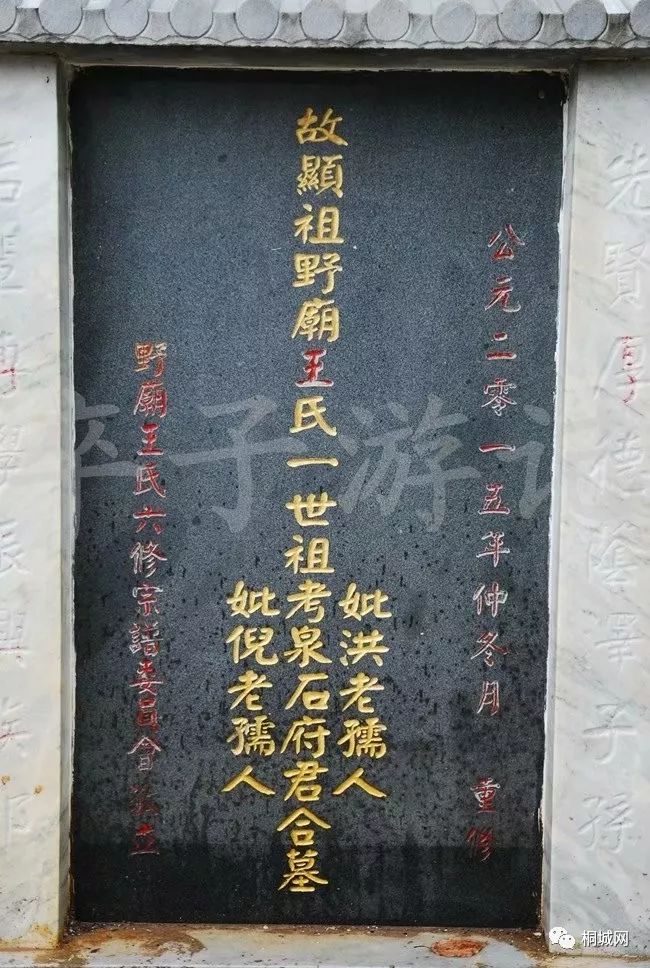 先賢厚德蔭澤子孫
公元二零一五年仲冬月 重修
妣洪老孺人
故顯祖野廟王氏一世祖考泉石府君合墓
妣倪老孺人
野廟王氏六修宗譜委員會 立
后輩 學振興族邦
子游
桐城网